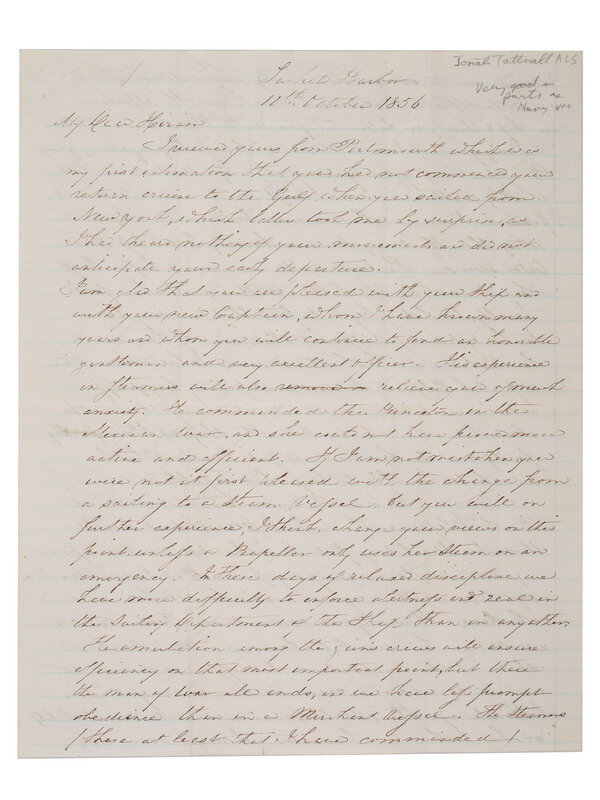 Josiah Tattnall ALS
Very good in
parts re
Navy
Sackets Harbor
12th October 1856
My Dear Hiram
I received yours from Portsmouth which was
my first intimation that you had not commenced your
return cruise to the Gulf when you sailed from
New York, which latter took me by surprise, as
I had heard nothing of your movements and did not
anticipate your early departure.
I am glad that you are pleased with your Ship and
with your new Captain, whom I have known many
years and whom you will continue to find an honorable
gentleman and very excellent officer. His experience
in steamers will also relieve you of much
anxiety. He commanded the Princeton in the
Mexican War, and she could not have been more
active and efficient. If I am not mistaken you
were not at first pleased with the change from
a sailing to a Steam Vessel, but you will on
further experience, I think, change your views on this
point, unless a Propeller only uses her Steam on an
emergency. In these days of relaxed discipline we
have more difficulty to enforce alertness and zeal in
the Sailing Department of the Ship than in any other.
The emulation among the guns crews will ensure
efficiency on that most important point, but there
the man of war all ends, and we have less prompt
obedience than in a Merchant Vessel. The Steamers
(those at least that I have commanded)